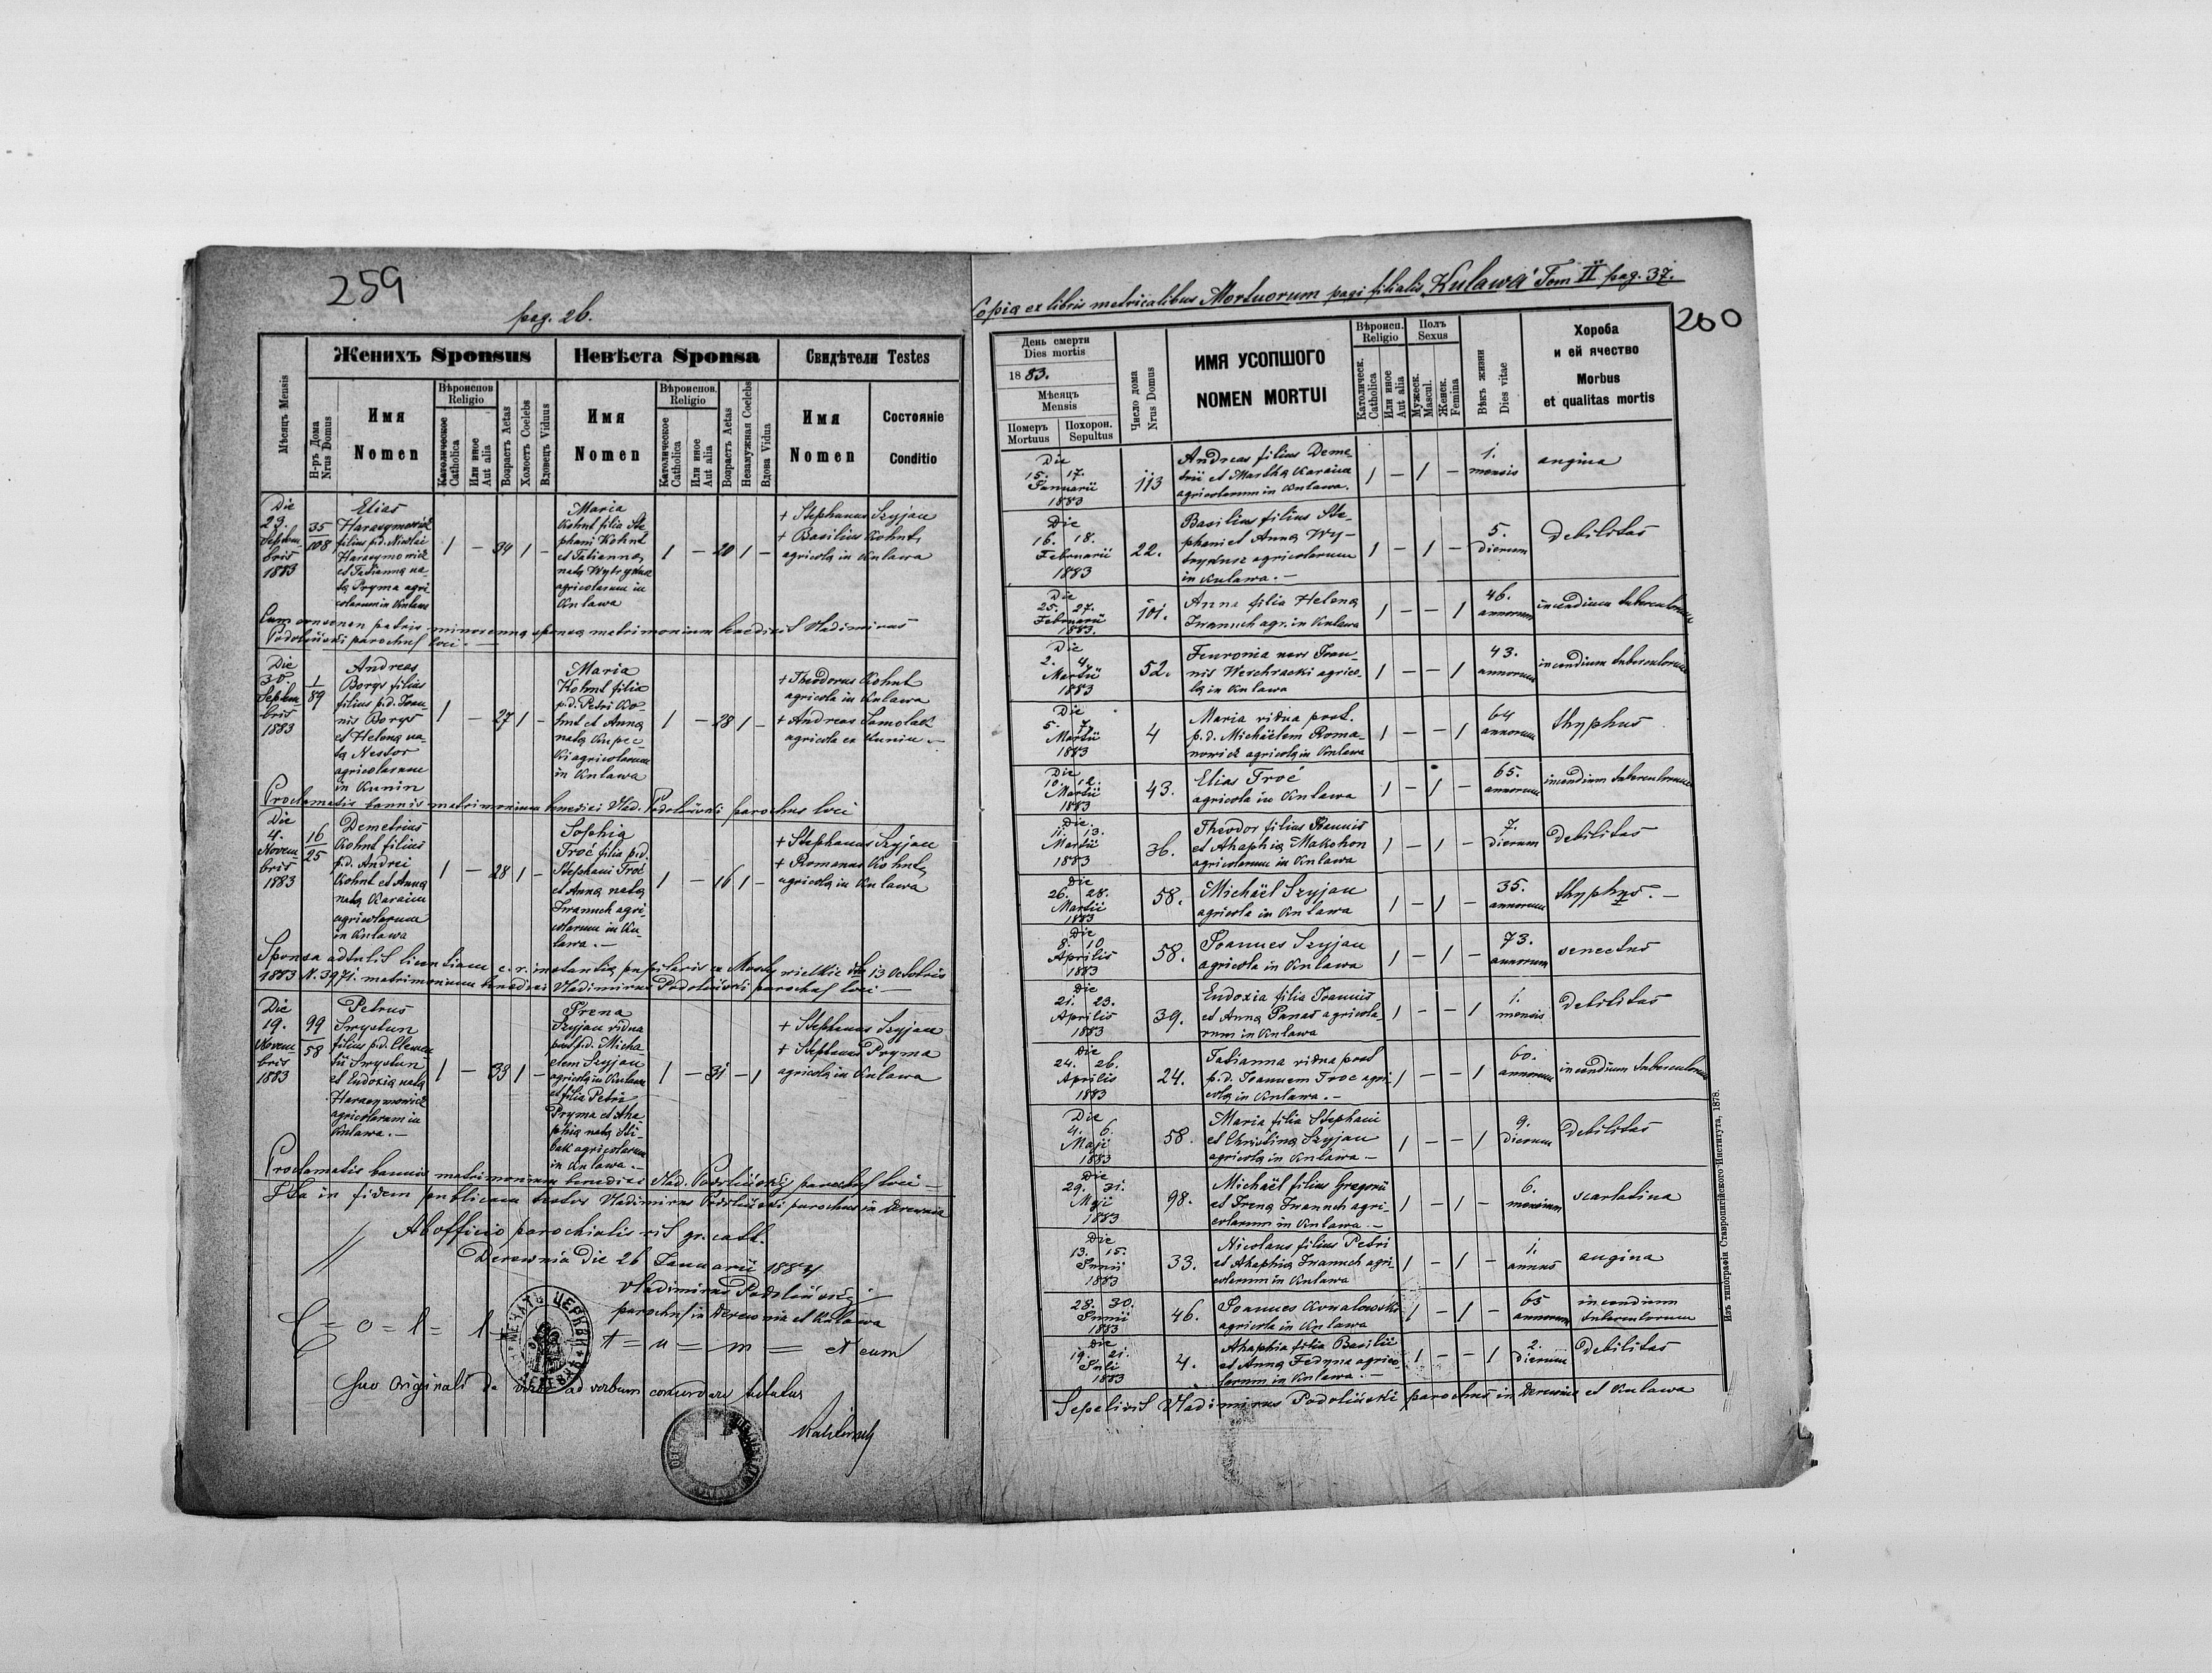 259
pag. 26.
Женихъ Sponsus
Невѣста Sponsa
Свидѣтели Testes
Мѣсяцъ Mensis
Н-ръ Дома
Nrus Domus
Имя
Nomen
Вѣроиспов
Religio
Католическое
Catholica
Или иное
Aut alia
Возрастъ Aetas
Холостъ Coelebs
Вдовецъ Viduus
Имя
Nomen
Вѣроиспов.
Religio
Католическое
Catholica
Или иное
Aut alia
Возрастъ Aetas
Незамужная Coelebs
Вдова Vidua
Имя
Nomen
Состояніе
Conditio
Die
23.
Septem-
bris
1883
35
108
Elias
Harasymowicz
filius p.d. Nicolai
Harasymowicz
et Tatianna na-
ta Pryma agri
colarum in Kulawa
1 – 34 1 –
Maria
Kohut filia Ste
phani Kohut
et Tatianna
nata Wytrykusz
agricolarum in
Kulawa
1 – 20 1 –
+ Stephanus Szyjan
+ Basilius Kohut,
agricola in Kulawa
Cum consensu patris minorenna sponsa matrimonium benedixit Vladimirus
Podoliński parochus loci. —
Die
30.
Septem-
bris
1883
1
89
Andreas
Borys filius
filius p.d. Ioan-
nis Borys
et Helena na-
ta Nestor
agricolarum
in Kunin
1 – 27 1 –
Maria
Kohut filia
p.d. Petri Ko-
hut et Anna
nata Kupec-
ki agricolarum
in Kulawa
1 – 28 1 –
+ Theodorus Kohut
agricola in Kulawa
+ Andreas Samolak
agricola ex Kunin. –
Proclamatis bannis matrimonium benedixi Vlad. Podoliński parochus loci
Die
4.
Novem
bris
1883
16
25
Demetrius
Kohut filius
p.d. Andrei
Kohut et Anna
nata Karaim
agricolarum
in Kulawa
1 – 28 1 –
Sophia
Troć filia p.d.
Stephani Troć
et Anna nata
Iwanuch agri-
colarum in Ku-
lawa. –
1 – 16 1 –
+ Stephanus Szyjan
+ Romanus Kohut,
agricola in Kulawa
Sponsa adtulit licentiam c. r. instantia pupilaris ex Mosty wielkie dto 13 Octobris
1883 N. 3971. matrimonium benedixi Vladimirus Podoliński parochus loci –
Die
19.
Novem
bris
1883
99
58
Petrus
Smystun
filius p.d. Clemen
tii Smystun
et Eudoxia nata
Harasymowicz
agricolarum in
Kulawa. –
1 – 33 1 –
Irena
Szyjan vidua
post p.d. Micha
elem Szyjan
agricola in Kulawa
et filia Petri
Pryma et Aha
phia nata Sti-
bak agricolarum
in Kulawa. –
1 – 31 – 1
+ Stephanus Szyjan
+ Stephanus Pryma
agricola in Kulawa
Proclamatis bannis matrimonium benedixi Vlad. Podoliński parochus loci –
Ita in fidem publicam testor Vladimirus Podoliński parochus in Derewnia
Ab officio parochialis rit gr. cath.
Derewnia Die 26 Januarii 1884
Vladimirus Podoliński
parochus in Derewnia et Kulawa
et cum
suo Originali de verbo ad verbum concordare testatur
ПЕЧАТЬ ЦЕРКВИ
Copia ex libris metricalibus Mortuorum pagi filialis „Kulawa" Tom II pag. 37.
260
День смерти
Dies mortis
1883.
Мѣсяцъ
Mensis
Померъ
Mortuus
Похорон.
Sepultus
Число дома
Nrus Domus
ИМЯ УСОПШОГО
NOMEN MORTUI
Вѣроисп.
Religio
Католическ.
Catholica
Или иное
Aut alia
Полъ
Sexus
Мужеск.
Mascul.
Женск.
Femina
Вѣкъ жизни
Dies vitae
Хороба
и ей ячество
Morbus
et qualitas mortis
Die
15. 17.
Januarii
1883
113
Andreas filius Deme-
trii et Martha Karaim
agricolarum in Kulawa.
1 – 1 –
1.
mensis
angina
Die
16. 18.
Februarii
1883
22.
Basilius filius Ste-
phani et Anna Wy-
trykusz agricolarum
in Kulawa. –
1 – 1 –
5.
dierum
debilitas
Die
25. 27.
Februarii
1883.
101.
Anna filia Helena
Iwanuch agr. in Kulawa
1 – – 1
46.
annorum
incendium tuberculorum
Die
2. 4.
Martii
1883
52.
Feuronia uxor Ioan-
nis Weschracki agrico-
la in Kulawa
1 – – 1
43.
annorum
incendium tuberculorum
Die
5. 7.
Martii
1883
4
Maria vidua post.
p.d. Michäelem Roma-
nowicz agricola in Kulawa
1 – – 1
64
annorum
thyphus
Die
10. 12.
Martii
1883
43.
Elias Troć
agricola in Kulawa
1 – 1 –
65.
annorum
incendium tuberculorum
Die.
11. 13.
Martii
1883
36.
Theodor filius Ioannis
et Ahaphia Makohon
agricolarum in Kulawa
1 – 1 –
7.
dierum
debilitas
Die
26. 28.
Martii
1883
58.
Michäel Szyjan
agricola in Kulawa
1 – 1 –
35.
annorum
thyphus. –
Die
8. 10
Aprilis
1883
58.
Ioannes Szyjan
agricola in Kulawa
1 – 1 –
73.
annorum
senectus
Die
21. 23.
Aprilis
1883
39.
Eudoxia filia Ioannis
et Anna Panas agricola-
rum in Kulawa
1 – – 1
1.
mensis
debilitas
Die
24. 26.
Aprilis
1883
24.
Tatianna vidua post
p.d. Ioannem Troc agri-
cola in Kulawa. –
1 – – 1
60.
annorum
incendium tuberculorum
Die
4. 6.
Maji
1883
58.
Maria filia Stephani
et Christina Szyjan
agricola in Kulawa. –
1 – – 1
9.
dierum
debilitas
Die
29. 31.
Maji
1883
98.
Michäel filius Gregorii
et Irena Iwanuch agri-
colarum in Kulawa. –
1 – 1 –
6.
mensium
scarlatina
Die
13. 15.
Junii
1883
33.
Nicolaus filius Petri
et Ahaphia Iwanuch agri-
colarum in Kulawa
1 – 1 –
1.
annus
angina
28. 30.
Junii
1883
46.
Ioannes Konalowski
agricola in Kulawa
1 – 1 –
65
annorum
incendium
tuberculorum
Die
19. 21.
Juli
1883
4.
Ahaphia filia Basilii
et Anna Fedyna agrico-
larum in Kulawa. –
1 – – 1
2.
dierum
debilitas
Sepelivit Vladimirus Podoliński parochus in Derewnia et Kulawa
Изъ типографіи Ставропигійского Института, 1878.